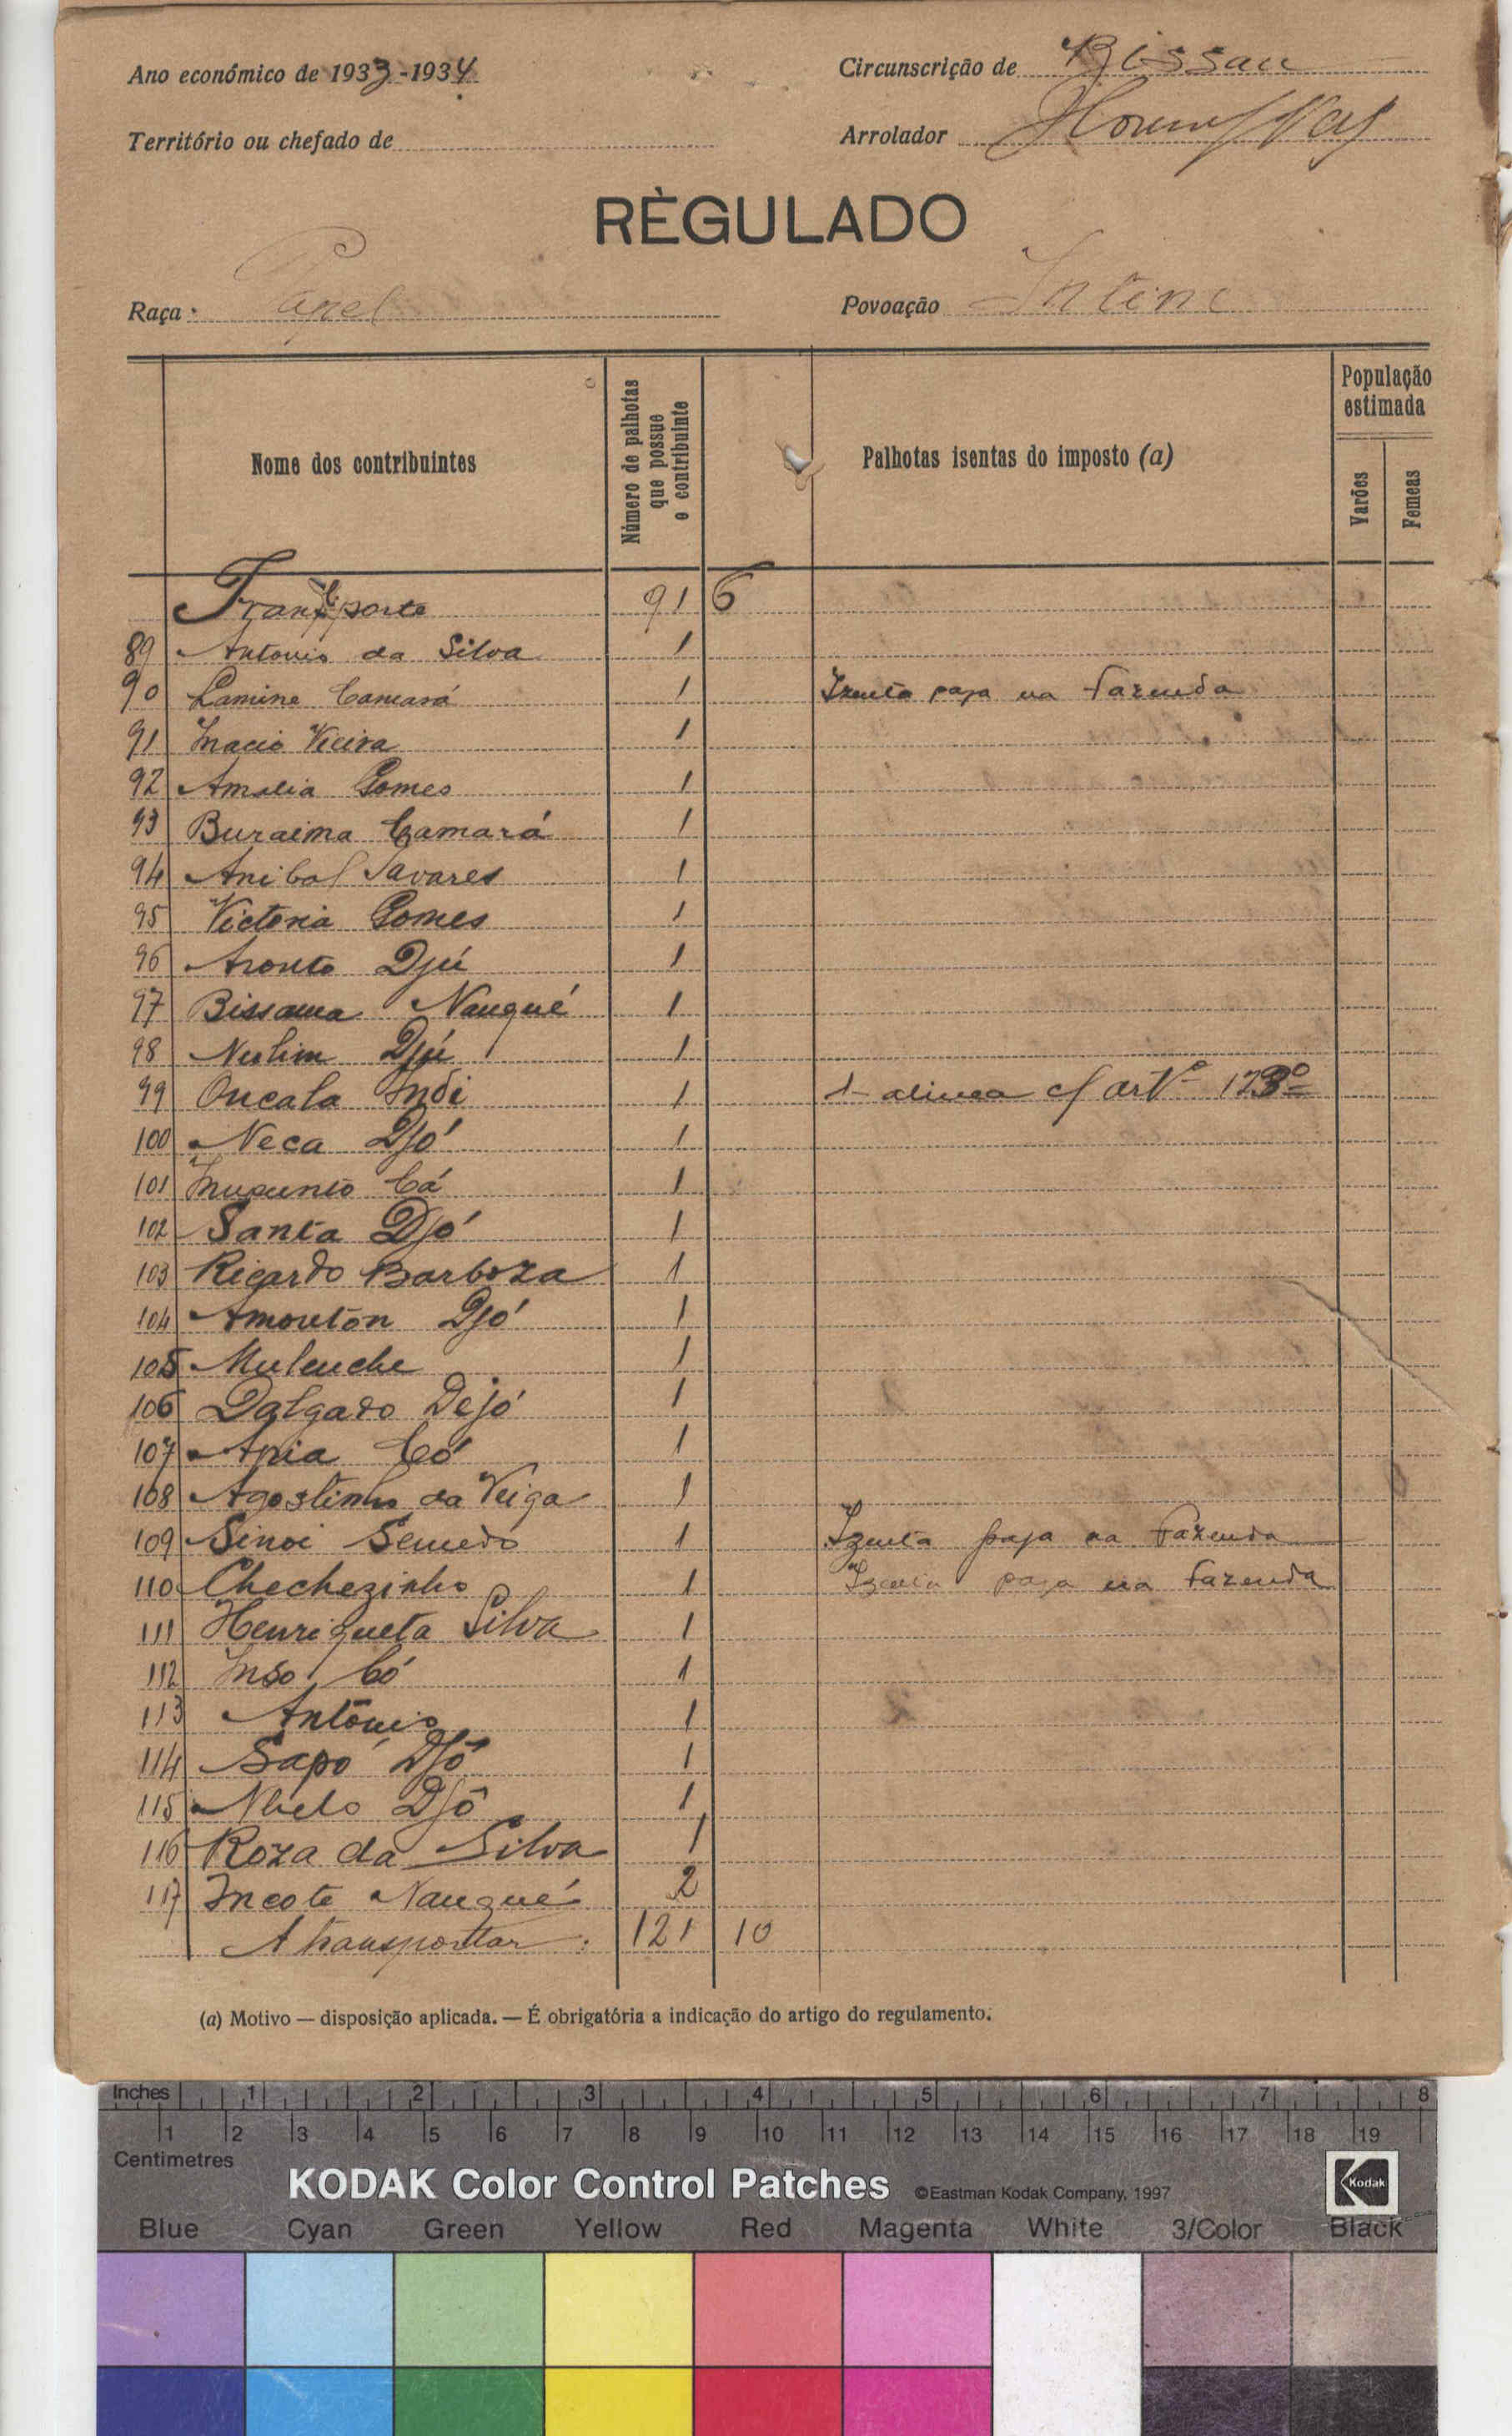 Ano económico de 1933-1934 Circunscrição de Bissau
Território ou chefado de Arrolador
RÈGULADO
Raça: Papel Povoação Intim
Nome dos contribuintes Número de palhotas que possue o contribuinte Palhotas isentas do imposto (a) População estimada Varões Femeas
Transporte 91 6
89 Antonio da Silva 1
90 Lamine Camará 1 Izenta paga na fazenda
91 Inacio Vieira 1
92 Amalia Gomes 1
93 Buraima Camará 1
94 Anibal Tavares 1
95 Victoria Gomes 1
96 Aronto Djú 1
97 Bissama Nauqué 1
98 Nulim Djú 1
99 Oncala Indi 1 1 alinea c/ artº 123º
100 Neca Djó 1
101 Cá 1
102 Santa Djó 1
103 Ricardo Barboza 1
104 Amonton Djó 1
105 Mulenche 1
106 Dalgado Dejó 1
107 Apia Có 1
108 Agostinho da Veiga 1
109 Sinoi Semedo 1 Izenta paga na fazenda
110 Chechezinho 1 Izenta paga na fazenda
111 Henriqueta Silva 1
112 Inso Có 1
113 Antonio 1
114 Sapó Djô 1
115 Djô 1
116 Roza da Silva 1
117 Incote Nauqué 2
A transportar: 121 10
(a) Motivo — disposição aplicada. — É obrigatória a indicação do artigo do regulamento.
Inches 1 2 3 4 5 6 7 8
1 2 3 4 5 6 7 8 9 10 11 12 13 14 15 16 17 18 19
Centimetres
KODAK Color Control Patches ©Eastman Kodak Company, 1997 Kodak
Blue Cyan Green Yellow Red Magenta White 3/Color Black